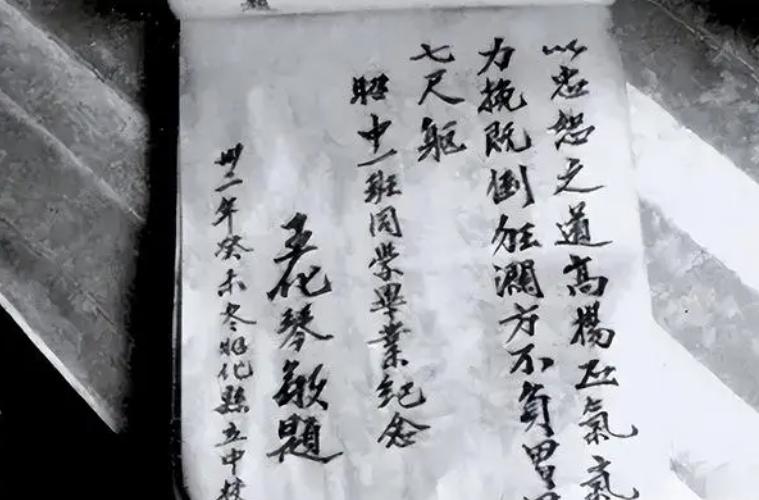 以忠恕之道高楊正氣
力挽既倒狂瀾方不負男
七尺軀
昭中一班同學畢業紀念
王化琴敬題
卅二年癸未冬昭化縣立中校